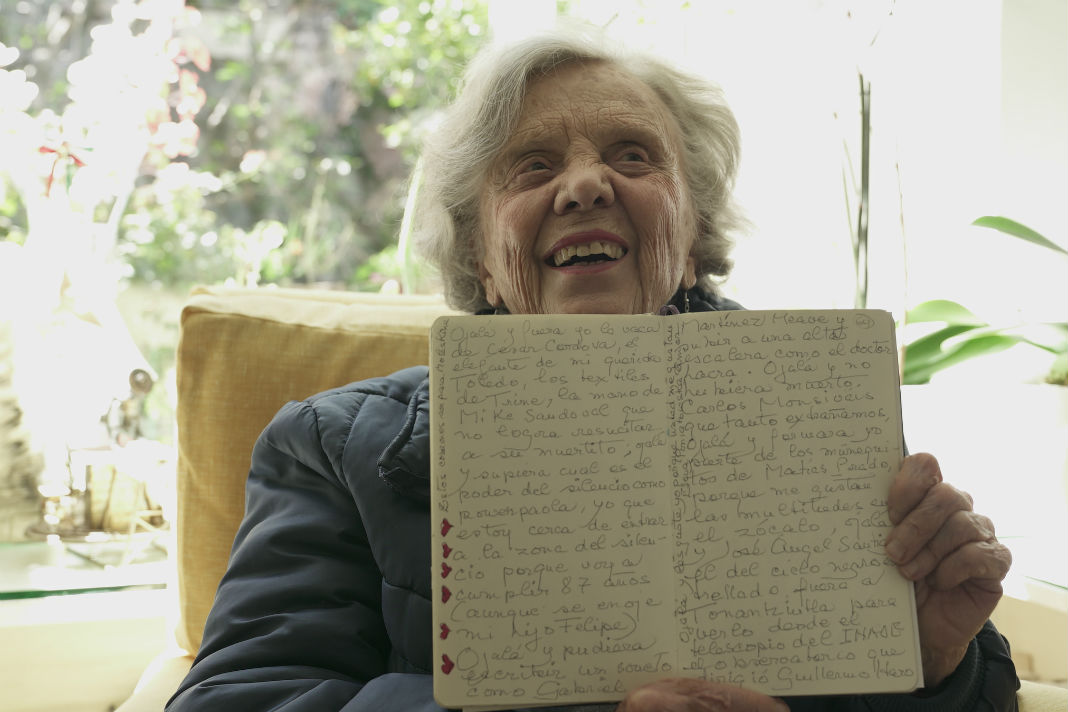 Ojala y fuera yo la vaca
de César Córdova, el
elefante de mi querido
Toledo, los textiles
de Trine, la mano de
Mike Sandoval que
no logra resucitar
a su muertito, ojala
y supiera cual es el
poder del silencio como
yo que
estoy cerca de entrar
a la zona del silen-
cio porque voy a
cumplir 87 años
(aunque se enoje
mi hijo Felipe)
Ojala y pudiera
escribir un soneto
como Gabriel
Martínez Meave y
subir a una alta
escalera como el doctor
Lacra. Ojala y no
hubiera muerto
Carlos Monsiváis
que tanto extrañamos,
Ojala y formara yo
parte de los muñequi-
tos de Matías Prado,
porque me gustan
las multitudes en
el zócalo, ojala
y José Ángel Santia-
go el del cielo negro
fuera a
Tonantzintla para
verlo desde el
telescopio del INAOE
el observatorio que
dirigió Guillermo Haro